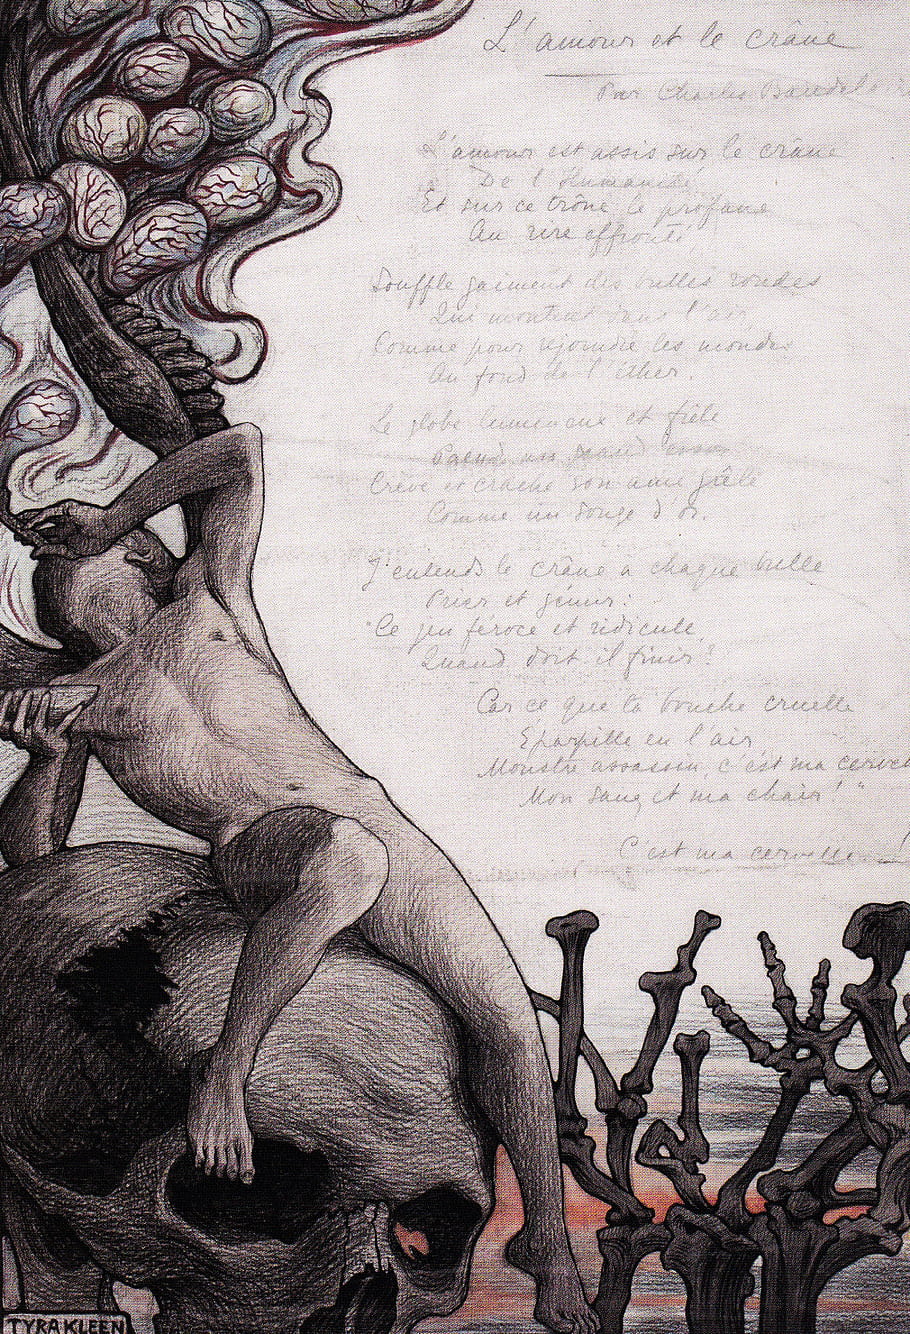 L'amour et le crâne
Par Charles Baudelaire
L'amour est assis sur le crâne
De l'Humanité
Et sur ce trône le profane
Au rire effronté
Souffle gaiment des bulles rondes
Qui montent dans l'air
Comme pour rejoindre les mondes
Au fond de l'éther.
Le globe lumineux et frêle
Prend un grand essor
Crève et crache son âme grêle
Comme un songe d'or.
J'entends le crâne à chaque bulle
Prier et gémir:
"Ce jeu féroce et ridicule,
Quand doit il finir?
Car ce que ta bouche cruelle
Eparpille en l'air
Monstre assassin, c'est ma cervel
Mon sang et ma chair!"
C'est ma cervelle — !
TYRA KLEEN